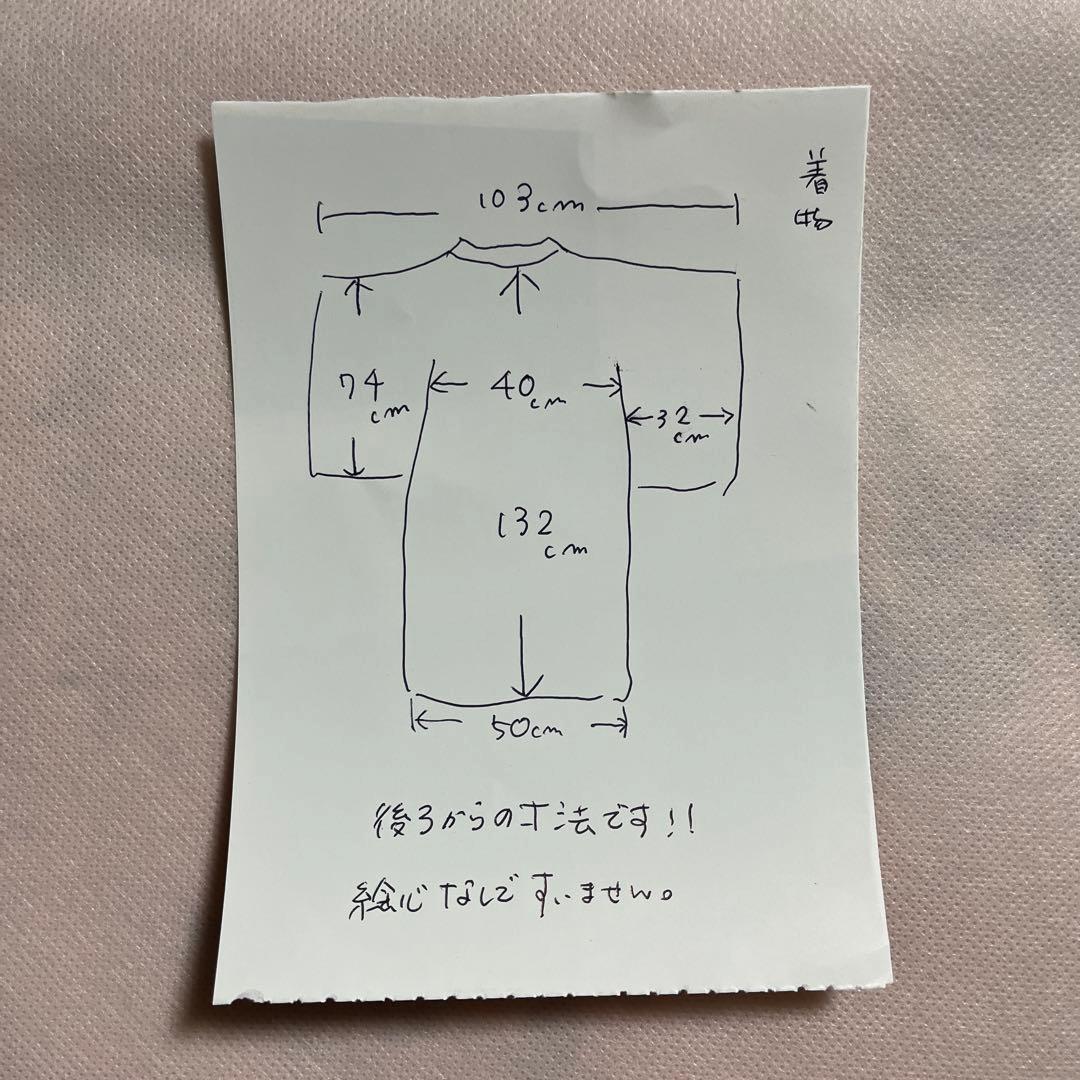 着物
103cm
74cm
40cm
32cm
132cm
50cm
後ろからの寸法です!!
絵心なしですいません。